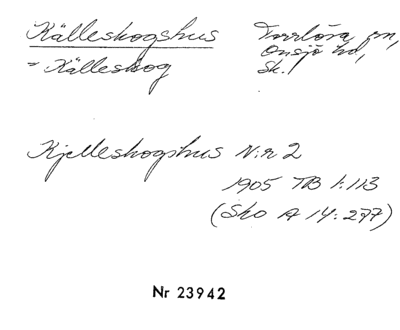 Källeskogshus Torrlösa sn,
= Källeskog Onsjö hd,
Sk.
Kjelleskogshus N:r 2
1905 TB 1:113
(Sko A 14:277)
Nr 23942